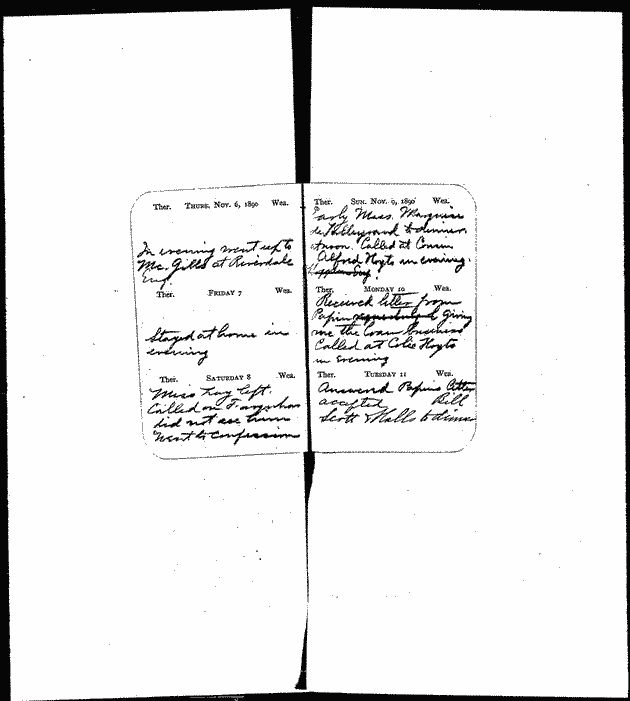 Ther. THURS. NOV. 6, 1890 Wea.
In evening went up to
Mc. Gills at Riverdale
Eng.
Ther. FRIDAY 7 Wea.
Stayed at home in
evening
Ther. SATURDAY 8 Wea.
Miss Lay left.
Called on Farquhar
did not see him
Went to confession
Ther. SUN. NOV. 9, 1890 Wea.
Early Mass. Marquise
de Talleyrand to dinner
at noon. Called at Cousin
Alfred Hoyts in evening.
Ther. MONDAY 10 Wea.
Recieved letter from
Papin giving
me the loan business
Called at Colie Hoyts
in evening
Ther. TUESDAY 11 Wea.
Answered Papins letter
accepted Bill
Scott & Halls to dinner